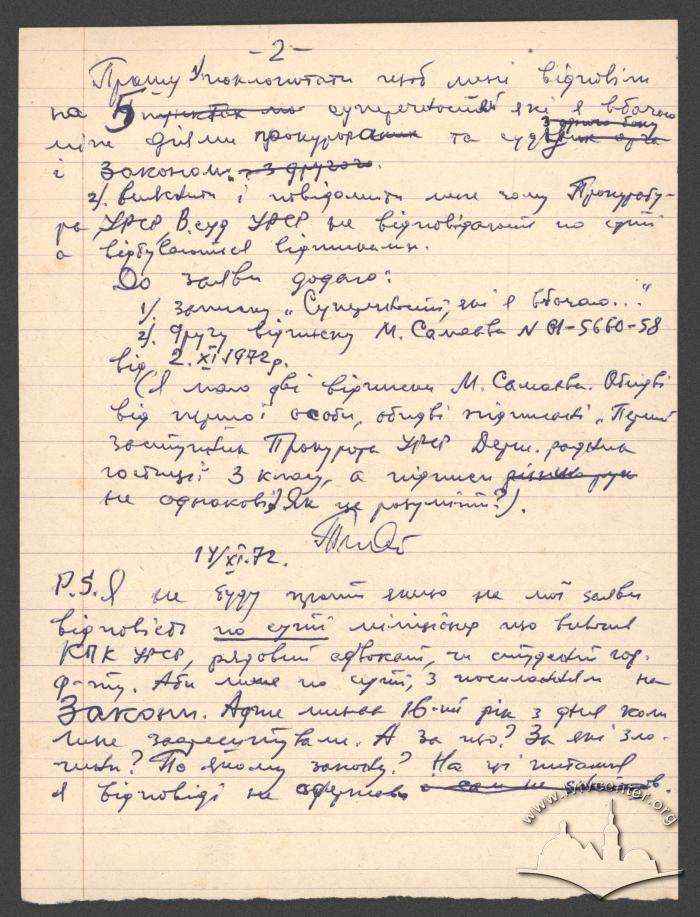 -2-
Прошу 1/ поклопотати щоб мені відповіли
на 5 пунктах по суперечностей які я вбачаю
з одного боку
між діями прокурора та суду
і законом. з другого.
2/. вияснити і повідомити мене чому Прокурату-
ра УРСР, В. суд УРСР не відповідають по суті
а відбуваються відписками.
До заяви додаю:
1/. записку „Суперечності, які я вбачаю..."
2/. другу відписку М. Самаєва N 01-5660-58
від 2.XI 1972 р.
(Я маю дві відписки М. Самаєва. Обидві
від першої особи, обидві підписані „Перший
заступник Прокурора УРСР Держ. радник
юстиції 3 класу, а підписи
не однакові. Як це розуміти?).
14/XI.72.
P.S. Я не буду проти якщо на мої заяви
відповість по суті міліціонер що вивчив
КПК УРСР, рядовий адвокат, чи студент юр.
ф-ту. Аби лише по суті, з посиланням на
Закони. Адже минає 16-ий рік з дня коли
мене заарештували. А за що? За які зло-
чини? По якому закону? На ці питання
я відповіді не одержав
www.lvivcenter.org